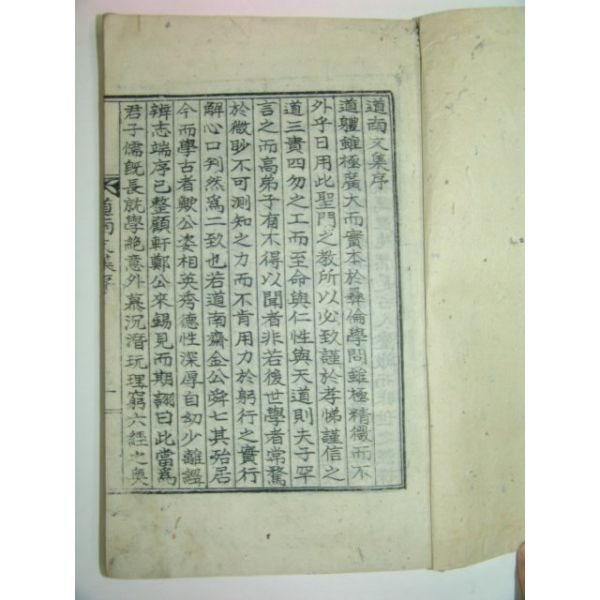 道南文集序
道體雖極廣大而實本於彛倫學問雖極精微而不
外乎日用此聖門之教所以必致謹於孝悌謹信之
道三貴四勿之工而至命與仁性與天道則夫子罕
言之而高弟子有不得以聞者非若後世學者常騖
於微眇不可測知之力而不肯用力於躬行之實行
解心口判然爲二致也若道南齋金公舜七其殆居
今而學古者歟公姿相英秀德性深厚自幼少離
辨志端序已整顧軒鄭公來錫見而期詡曰此當爲
君子儒旣長就學絶意外慕沉潛玩理窮六經之奥
道南文集序
一